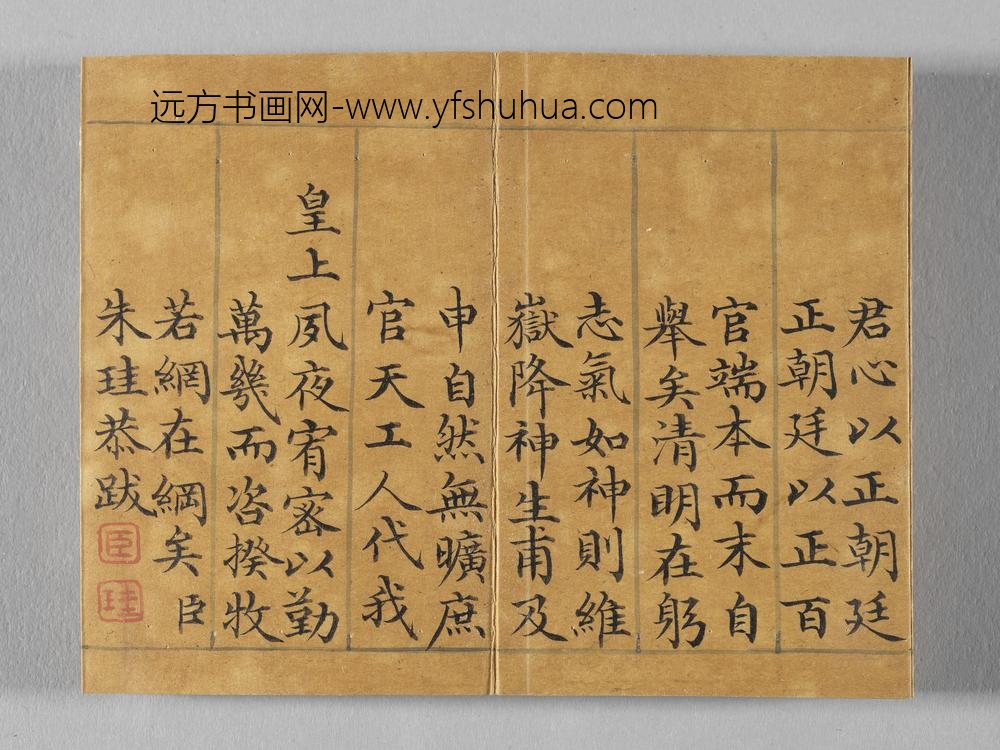 远方书画网-www.yfshuhua.com
君心以正朝廷
正朝廷以正百
官端本而末自
舉矣清明在躬
志氣如神則維
嶽降神生甫及
申自然無曠庶
官天工人代我
皇上夙夜宥密以勤
萬幾而咨揆牧
若網在綱矣臣
朱珪恭跋
臣
珪